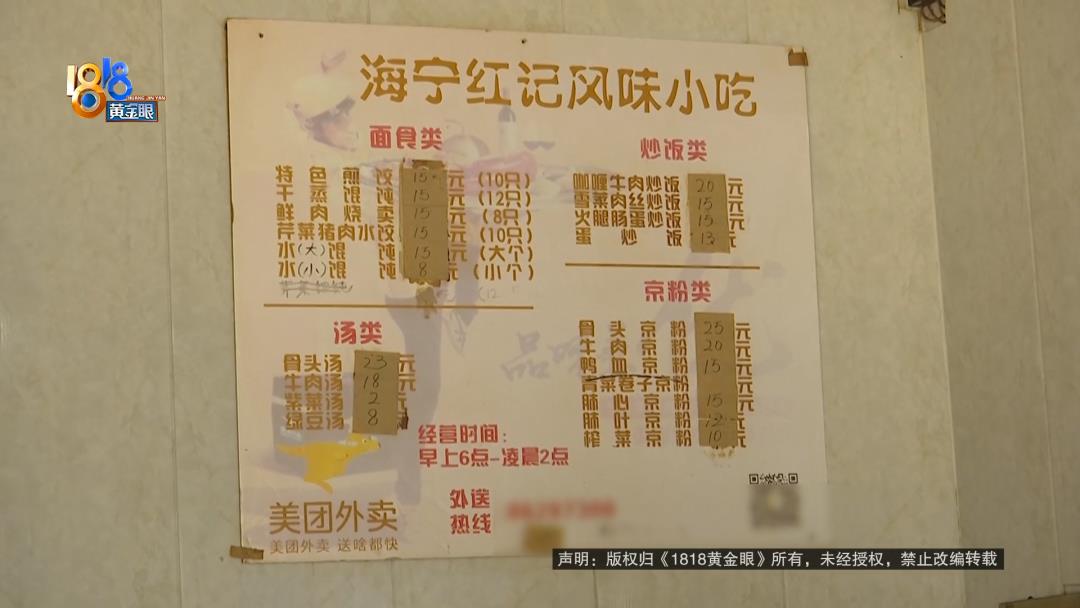 1818
HUANG JIN YAN
黄金眼
海宁红记风味小吃
面食类
特色煎饺 15 元 (10只)
干蒸馄饨 15 元 (12只)
鲜肉烧卖 15 元 (8只)
芹菜猪肉水饺 15 元 (10只)
水(大)馄饨 15 元 (大个)
水(小)馄饨 8 元 (小个)
炒饭类
咖喱牛肉炒饭 20 元
雪菜肉丝炒饭 15 元
火腿肠蛋炒饭 15 元
蛋炒饭 13 元
汤类
骨头汤 23 元
牛肉汤 18 元
紫菜汤 2 元
绿豆汤 8 元
京粉类
骨头京粉 25 元
牛肉京粉 20 元
鸭血京粉 15 元
青菜卷子京粉 元
肺心京粉 15 元
肺叶京粉 12 元
榨菜京粉 10 元
经营时间:
早上6点-凌晨2点
美团外卖
美团外卖 送啥都快
外送
热线
声明：版权归《1818黄金眼》所有，未经授权，禁止改编转载